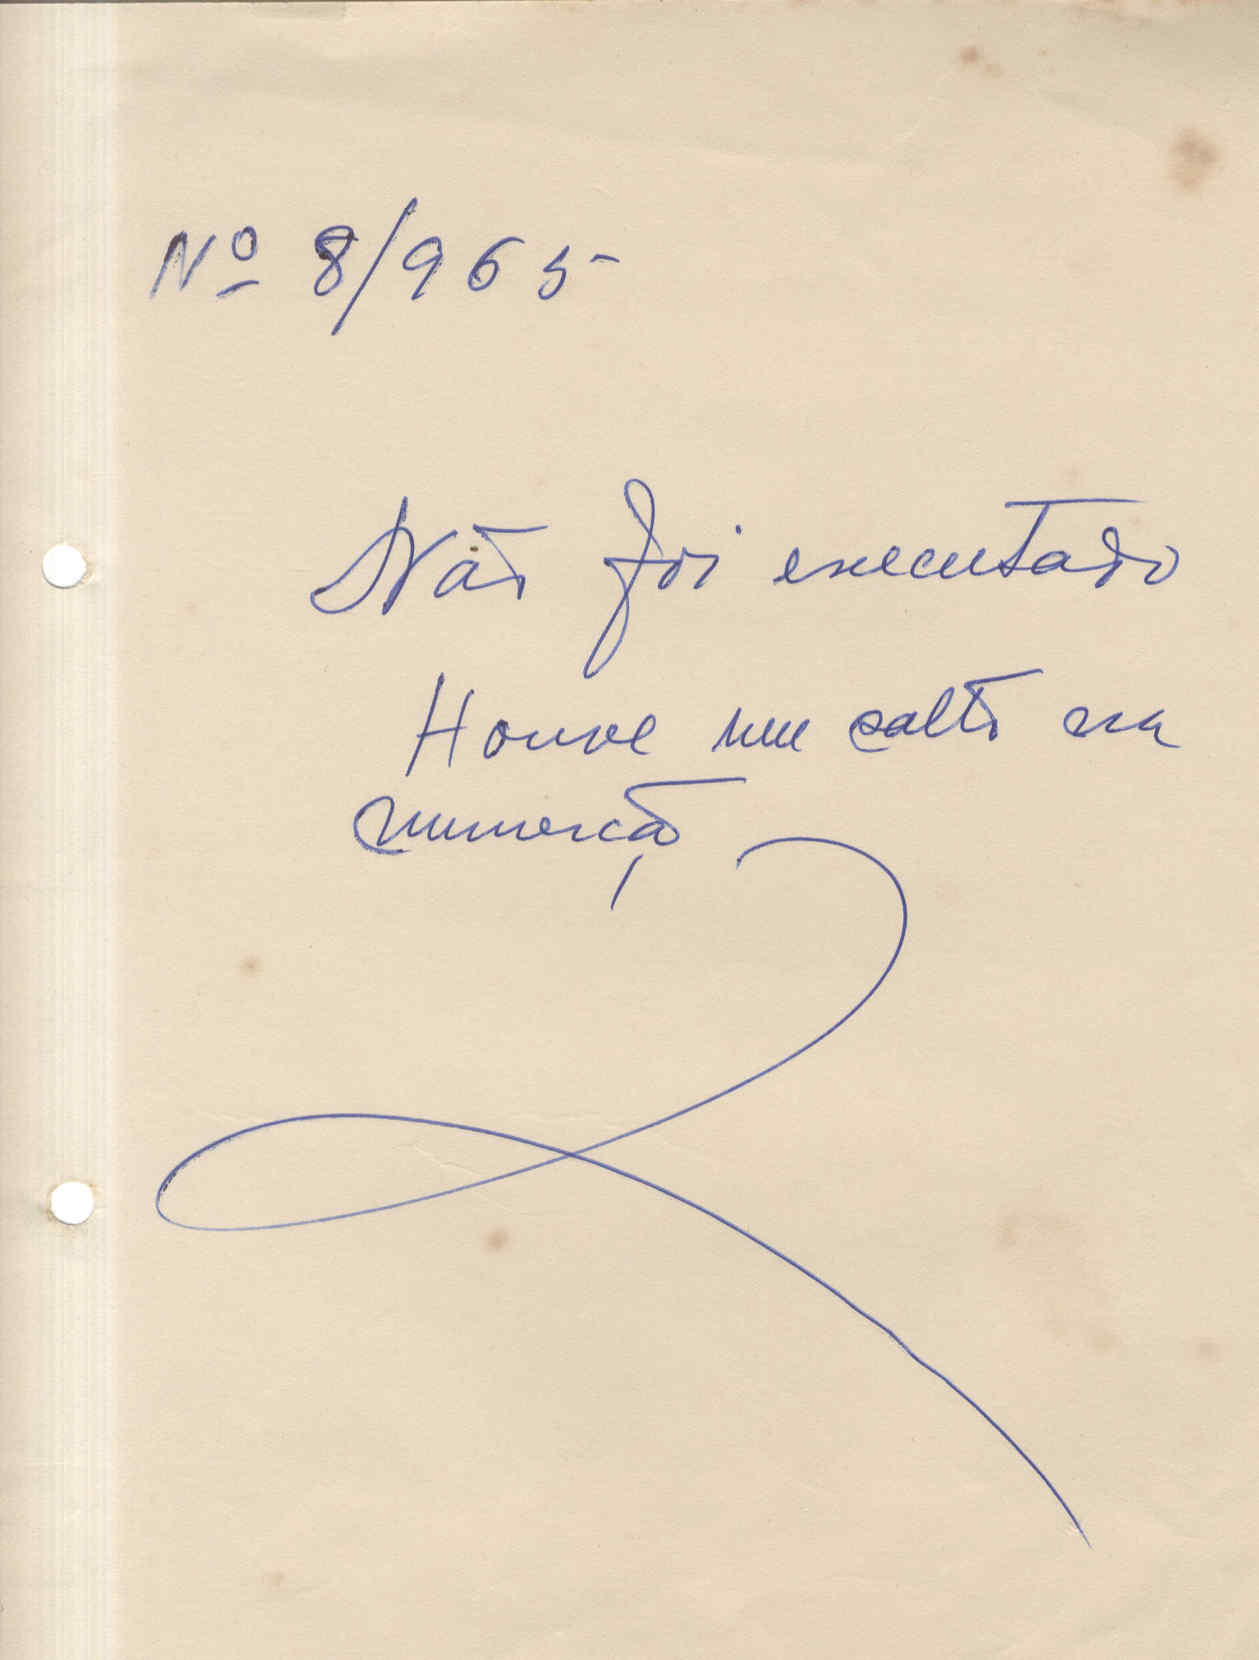 Nº 8/965
Não foi executado
Houve um salto na
numerção